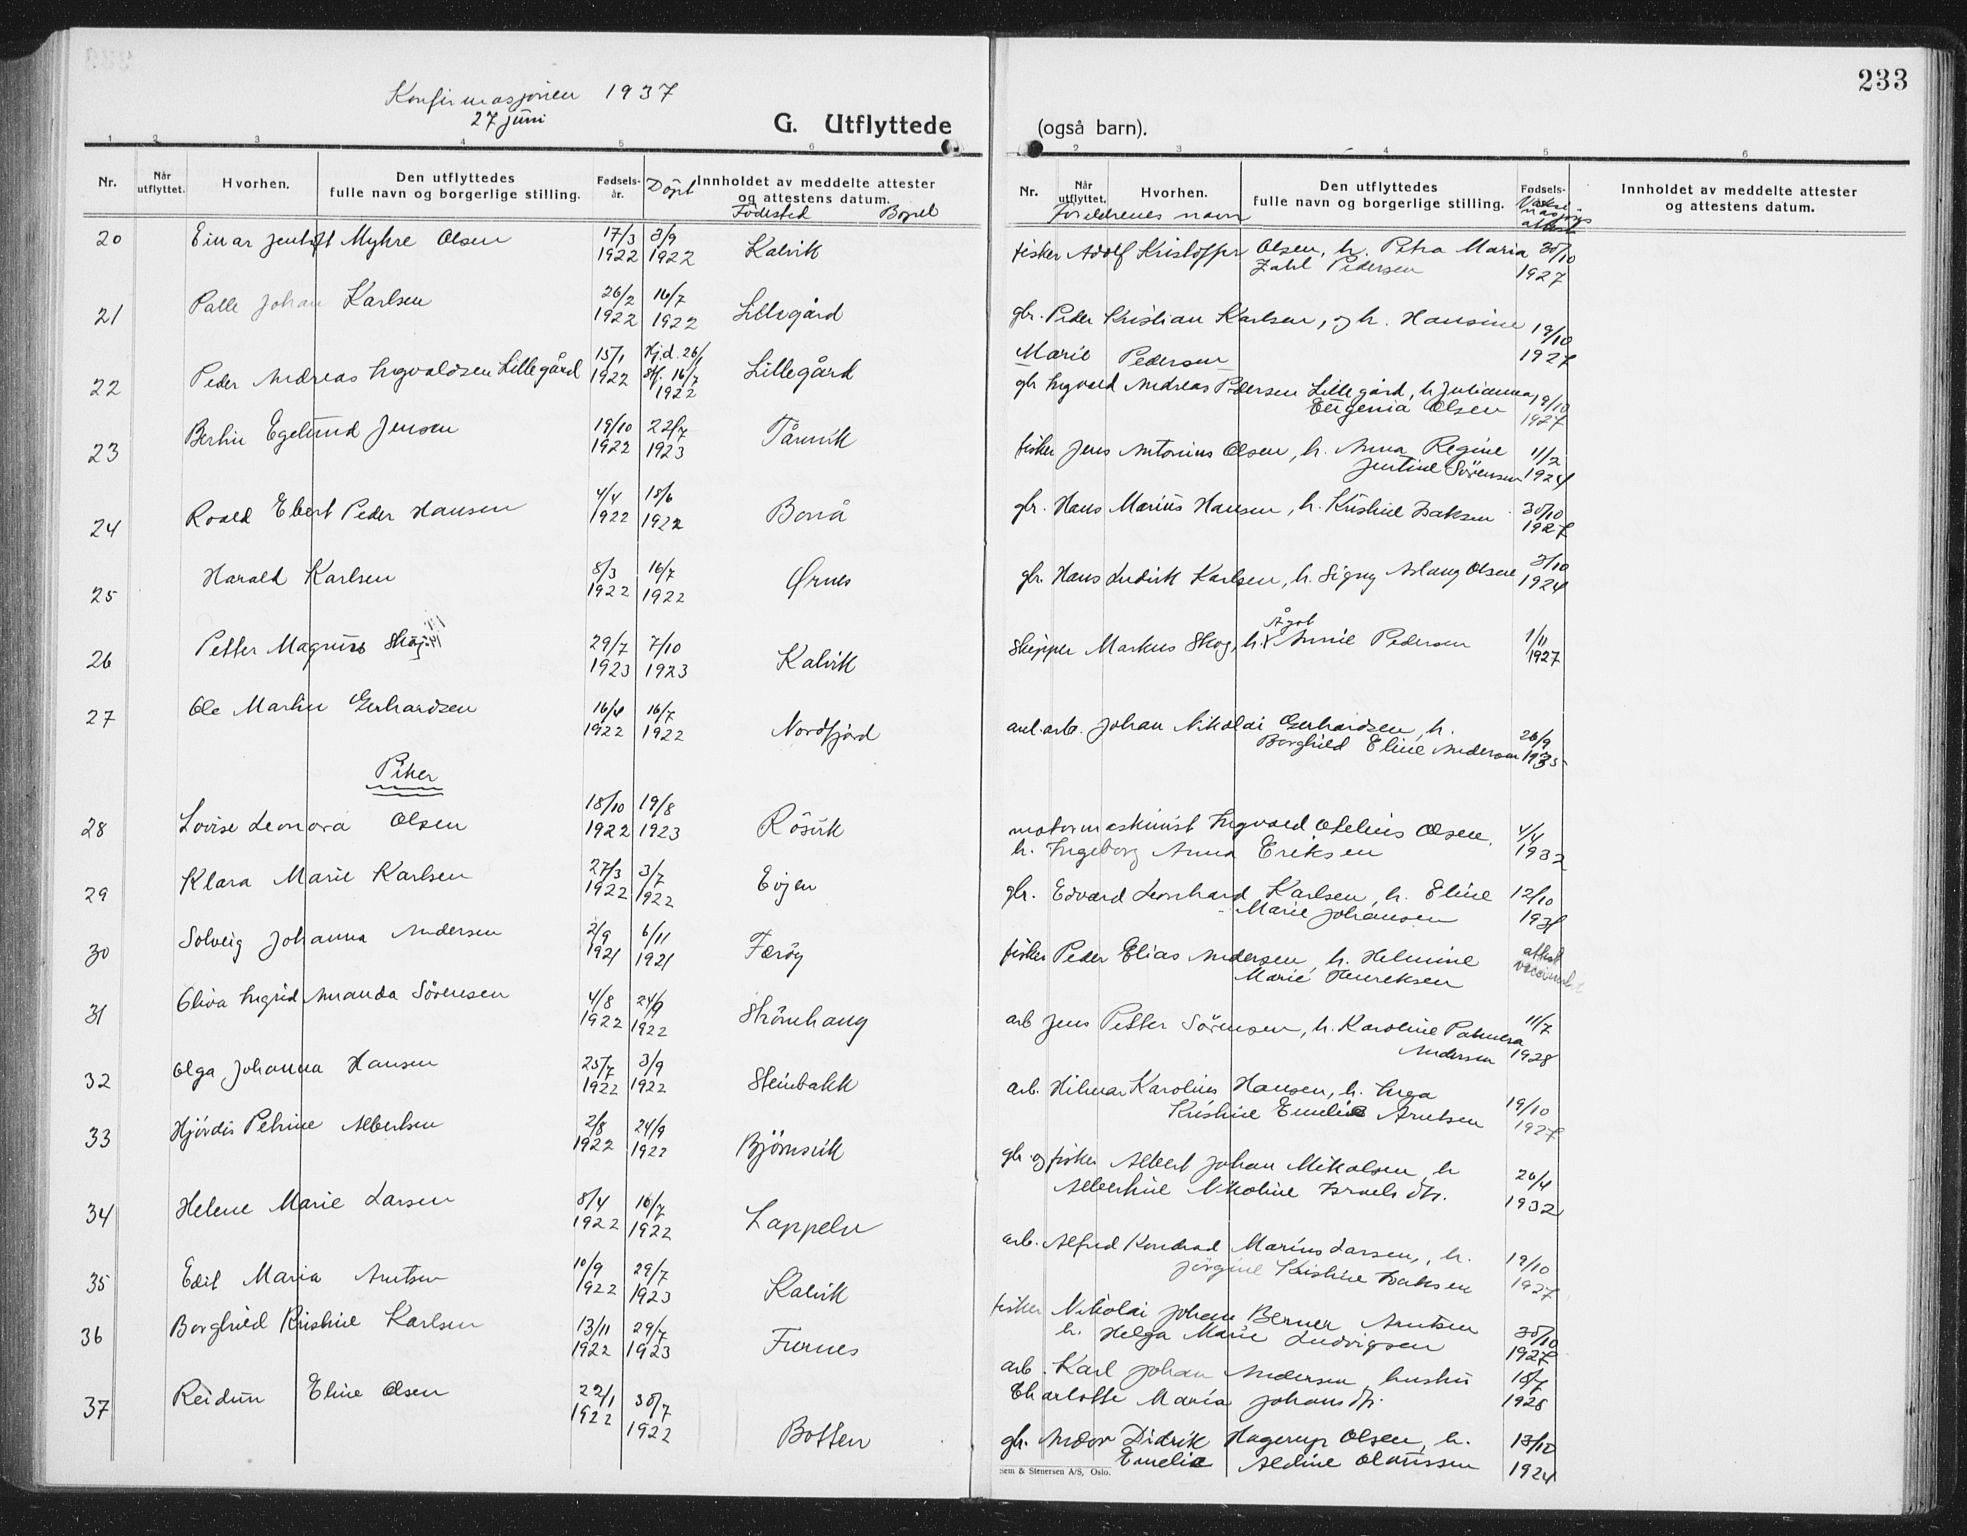 233
Konfirmasjonen 1937
27 juni
G. Utflyttede
(også barn).
1 2 3 4 5 6
2 3 4 5 6
Nr. Når utflyttet. Hvorhen. Den utflyttedes fulle navn og borgerlige stilling. Fødsels-år. Döpt Innholdet av meddelte attester og attestens datum.
Födested Bopel
Nr. Når utflyttet. Hvorhen. Den utflyttedes fulle navn og borgerlige stilling. Fødsels- Innholdet av meddelte attester og attestens datum.
Foreldrenes navn attest
20 Einar Jentoft Myhre Olsen 17/3 1922 3/9 1922 Kalvik
fisker Adolf Kristoffer Olsen, h. Petra Maria 30/10
Zahl Pedersen 1927
21 Palle Johan Karlsen 26/2 1922 16/7 1922 Lillegård
gbr. Peder Kristian Karlsen, og h. Hansine 19/10
Marie Pedersen 1927
22 Peder Andreas Ingvaldsen Lillegård 15/1 1922 Hj.d. 26/1 Stf. 16/7 1922 Lillegård
gbr Ingvald Andreas Pedersen Lillegård, h Julianna 19/10
Eugenia Olsen 1927
23 Berlin Egelund Jensen 19/10 1922 22/7 1923 Tårnvik
fisker Jens Antonius Olsen, h. Anna Regine 11/2
Justine Sörensen 1924
24 Roald Ebert Peder Hansen 4/4 1922 18/6 1922 Bonå
gbr. Hans Marius Hansen, h. Kristine Isaksen 30/10
1927
25 Harald Karlsen 8/3 1922 16/7 1922 Ørnes
gbr. Hans Ludvik Karlsen, h. Signy Aslaug Olsen 3/10
1924
26 Petter Magnus Skog 29/7 1923 7/10 1923 Kalvik
Ågot
skipper Markus Skog, h. Annie Pedersen 1/11
1927
27 Ole Martin Gerhardsen 16/4 1922 16/7 1922 Nordfjord
anl. arb. Johan Nikolai Gerhardsen, h. 26/9
Borghild Eline Andersen 1935
Piker
28 Lovise Leonora Olsen 18/10 1922 19/8 1923 Rösvik
motormaskinist Ingvald Otelius Olsen, 4/4
h. Ingeborg Anna Eriksen 1932
29 Klara Marie Karlsen 27/3 1922 3/7 1922 Evjen
gbr. Edvard Leonhard Karlsen, h. Eline 12/10
Marie Johansen 1931
30 Solveig Johanna Andersen 2/9 1921 6/11 1921 Færöy
fisker Peder Elias Andersen, h. Helmine attest
Marie Henriksen
31 Oliva Ingrid Amanda Sörensen 4/8 1922 24/9 1922 Strömhaug
arb Jens Petter Sörensen, h. Karoline Palmera 11/7
Andersen 1928
32 Olga Johanna Hansen 25/7 1922 3/9 1922 Steinbakk
arb. Hilmar Karolius Hansen, h. Inga 19/10
Kristine Emelie Arntsen 1927
33 Hjördis Petrine Albertsen 2/8 1922 24/9 1922 Björnsvik
gbr og fisker Albert Johan Mikalsen, h 26/4
Albertine Nikoline Israelsdtr. 1932
34 Helene Marie Larsen 8/4 1922 16/7 1922 Lappelv
arb. Alfred Konrad Marius Larsen, h. 19/10
Jörgine Kristine Isaksen 1927
35 Edit Maria Arntsen 10/9 1922 29/7 1923 Kalvik
fisker Nikolai Johan Berner Arntsen 30/10
h. Helga Marie Ludvigsen 1927
36 Borghild Kristine Karlsen 13/11 1922 29/7 1923 Furnes
arb. Karl Johan Andersen, hustru 18/7
Charlotte Maria Johansdtr. 1928
37 Reidun Eline Olsen 22/1 1922 30/7 1922 Botten
gbr. Andor Didrik Hagerup Olsen, h. 13/10
Emelie Aldine Olaussen 1924
Sem & Stenersen A/S, Oslo.